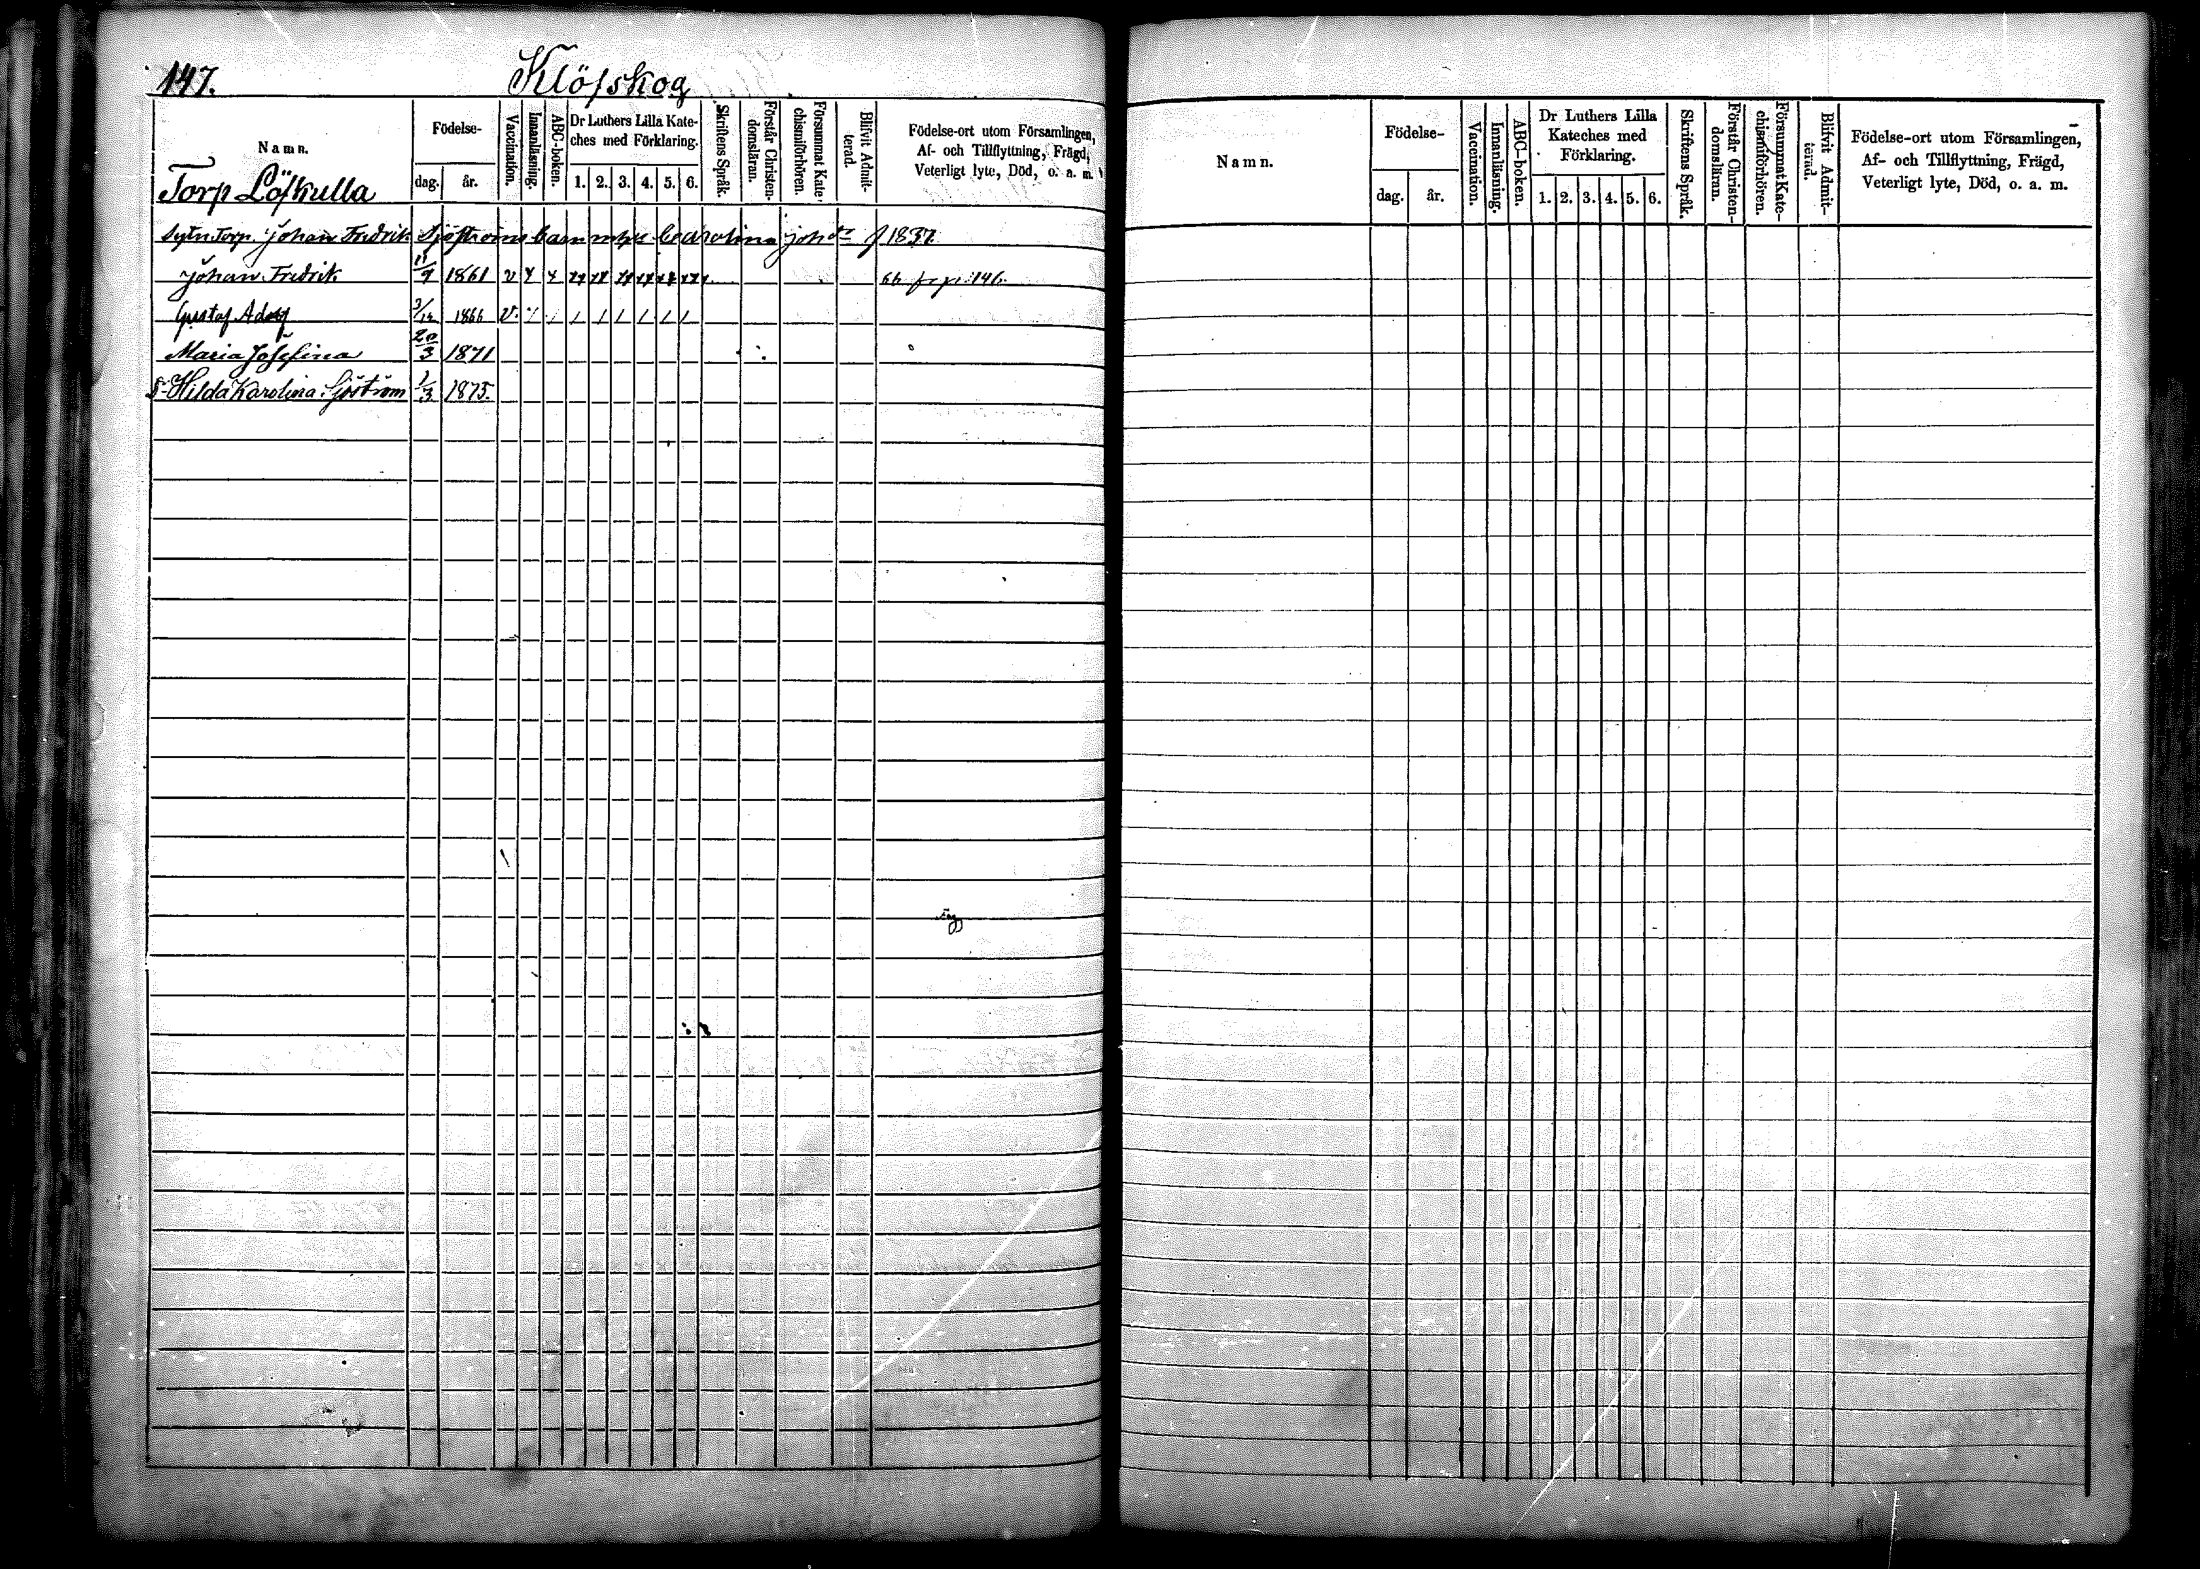 147. Klöfskog
Namn.
Födelse-
dag. år.
Vaccination.
Innanläsning.
ABC-boken.
Dr Luthers Lilla Kate-
ches med Förklaring.
1. 2. 3. 4. 5. 6.
Skriftens Språk.
Förstår Christen-
domsläran.
Försummat Kate-
chismiförhören.
Blifvit Admit-
terad.
Födelse-ort utom Församlingen,
Af- och Tillflyttning, Frägd,
Veterligt lyte, Död, o. a. m.
Torp Löfkulla
Torp. Johan Fredrik Sjöströms barn Carolina f 1837.
Johan Fredrik 11/9 1861 v
Gustaf Adolf 3/12 1866 v.
Maria Josefina 20/3 1871
Hilda Karolina Sjöström 1/3 1875.
Namn.
Födelse-
dag. år.
Vaccination.
Innanläsning.
ABC-boken.
Dr Luthers Lilla
Kateches med
Förklaring.
1. 2. 3. 4. 5. 6.
Skriftens Språk.
Förstår Christen-
domsläran.
Försummat Kate-
chismiförhören.
Blifvit Admit-
terad.
Födelse-ort utom Församlingen,
Af- och Tillflyttning, Frägd,
Veterligt lyte, Död, o. a. m.